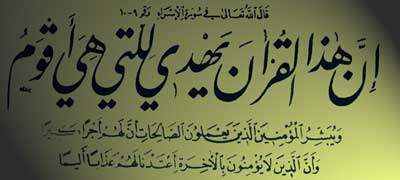 قَالَ اللهُ تَعَالَى فِي سُورَةِ الْإِسْرَاءِ رَقْم ٩-١٠
إِنَّ هٰذَا الْقُرْآنَ يَهْدِي لِلَّتِي هِيَ أَقْوَمُ
وَيُبَشِّرُ الْمُؤْمِنِينَ الَّذِينَ يَعْمَلُونَ الصَّالِحَاتِ أَنَّ لَهُمْ أَجْرًا كَبِيرًا
وَأَنَّ الَّذِينَ لَا يُؤْمِنُونَ بِالْآخِرَةِ أَعْتَدْنَا لَهُمْ عَذَابًا أَلِيمًا